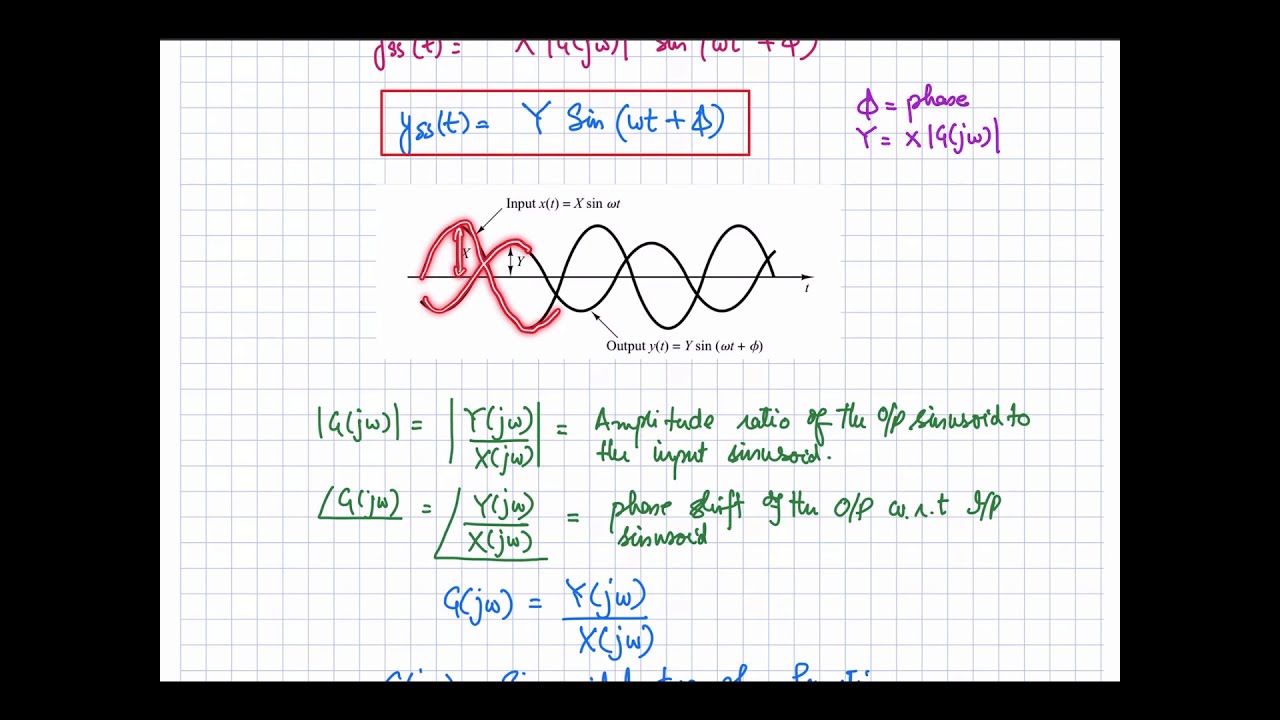 yss(t) = X |G(jω)| sin (ωt + ϕ)
yss(t) = Y Sin (ωt + ϕ)
ϕ = phase
Y = X |G(jω)|
Input x(t) = X sin ωt
X
Y
t
Output y(t) = Y sin (ωt + ϕ)
|G(jω)| = |Y(jω)/X(jω)| = Amplitude ratio of the o/p sinusoid to
the input sinusoid.
∠G(jω) = ∠Y(jω)/X(jω) = phase shift of the O/P w.r.t I/P
sinusoid
G(jω) = Y(jω)/X(jω)